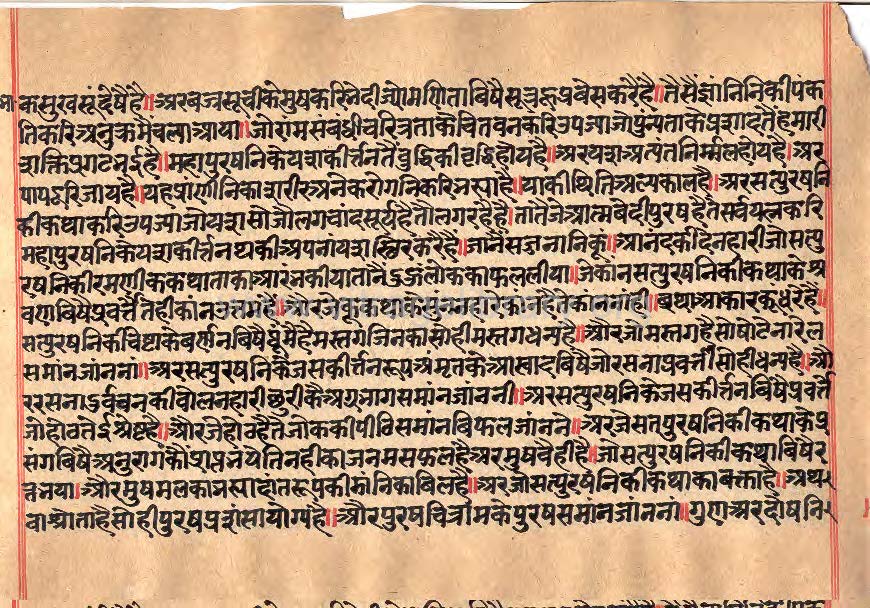 क सुख सूं देषै है॥ अर बज्रसूचीके मुष करि भेदी जो मणि ता बिषै सूत्र हू प्रवेस करै है॥ तैसैं ज्ञांनिनिकी पंक
तिकरि अनुक्रमैं चल्या आया॥ जो रांम संबंधी चरित्र ताकै चिंतवन करि उपज्या जो पुन्य ताके प्रसादतैं हमारी
शक्ति प्रगट भई है॥ महापुरषनिके यश कीर्त्तनतैं बुद्धिकी वृद्धि होय है॥ अर यश अत्यंत निर्म्मल होय है। अर
पाप टरि जाय है॥ यह प्राणीनिका शरीर अनेक रोगनिकरि भस्या है॥ याकी थिति अल्प काल है॥ अर सत्पुरषनि
की कथा करि उपज्या जो यश सो जो लग चांद सूर्य है तौ लग रहै है॥ तातै जे आत्मबेदी पुरष है ते सर्व यत्न करि
महापुरषनिके यश कीर्त्तन थकी अपनां यश स्थिर करै है॥ जानैं सज्जनानिकूं॥ आनंदकी देनहारी जो सत्पु
रषनिकी रमणीक कथा ताका आरंभ कीया तानै दोऊ लोकका फल लीया॥ जे कांन सत्पुरषनिकी कथाके श्र
वण बिषै प्रवर्त्तै तेही कांन उत्तम है॥ अर जे कुकथाके सुंननहारे कांन है ते कांन नांही॥ ब्रथा आकारकूं धरै है॥
सत्पुरषनिकी चेष्टाके बर्णन बिषै घूंमै है मस्तग जिनका सो ही मस्तग धन्य है॥ और जो मस्तग है सो थोटे नारेल
समान जांननां॥ अर सत्पुरषनिके जस कीर्त्तनरूप अंमृतके आस्वाद बिषै जो रसना प्रवर्त्ती सो ही धन्य है॥ औ
र रसना दुर्वचनकी बोलनहारी छुरीकै अग्रभाग समांन जांननी॥ अर सत्पुरषनिके जस कीर्त्तन बिषै प्रवर्त्तै
जो होठ तेई श्रेष्ठ है॥ और जे होठ है ते जोककी पीठि समांन बिफल जांनने॥ अर जे सतपुरषनिकी कथाके प्र
संग बिषै अनुरागको प्राप्त भये तिनहीका जनम सफल है अर मुष वैही है॥ जो सत्पुरषनिकी कथा बिषै र
त भया॥ और मुष मलका भस्या दांतरूप कीडानिका बिल है॥ अर जो सत्पुरषनिकी कथाका बक्ता है॥ अथ
वा श्रोता है सो ही पुरष प्रशंसा योग्य है॥ और पुरष चित्रांमके पुरष समांन जांननां॥ गुण अर दोषनि